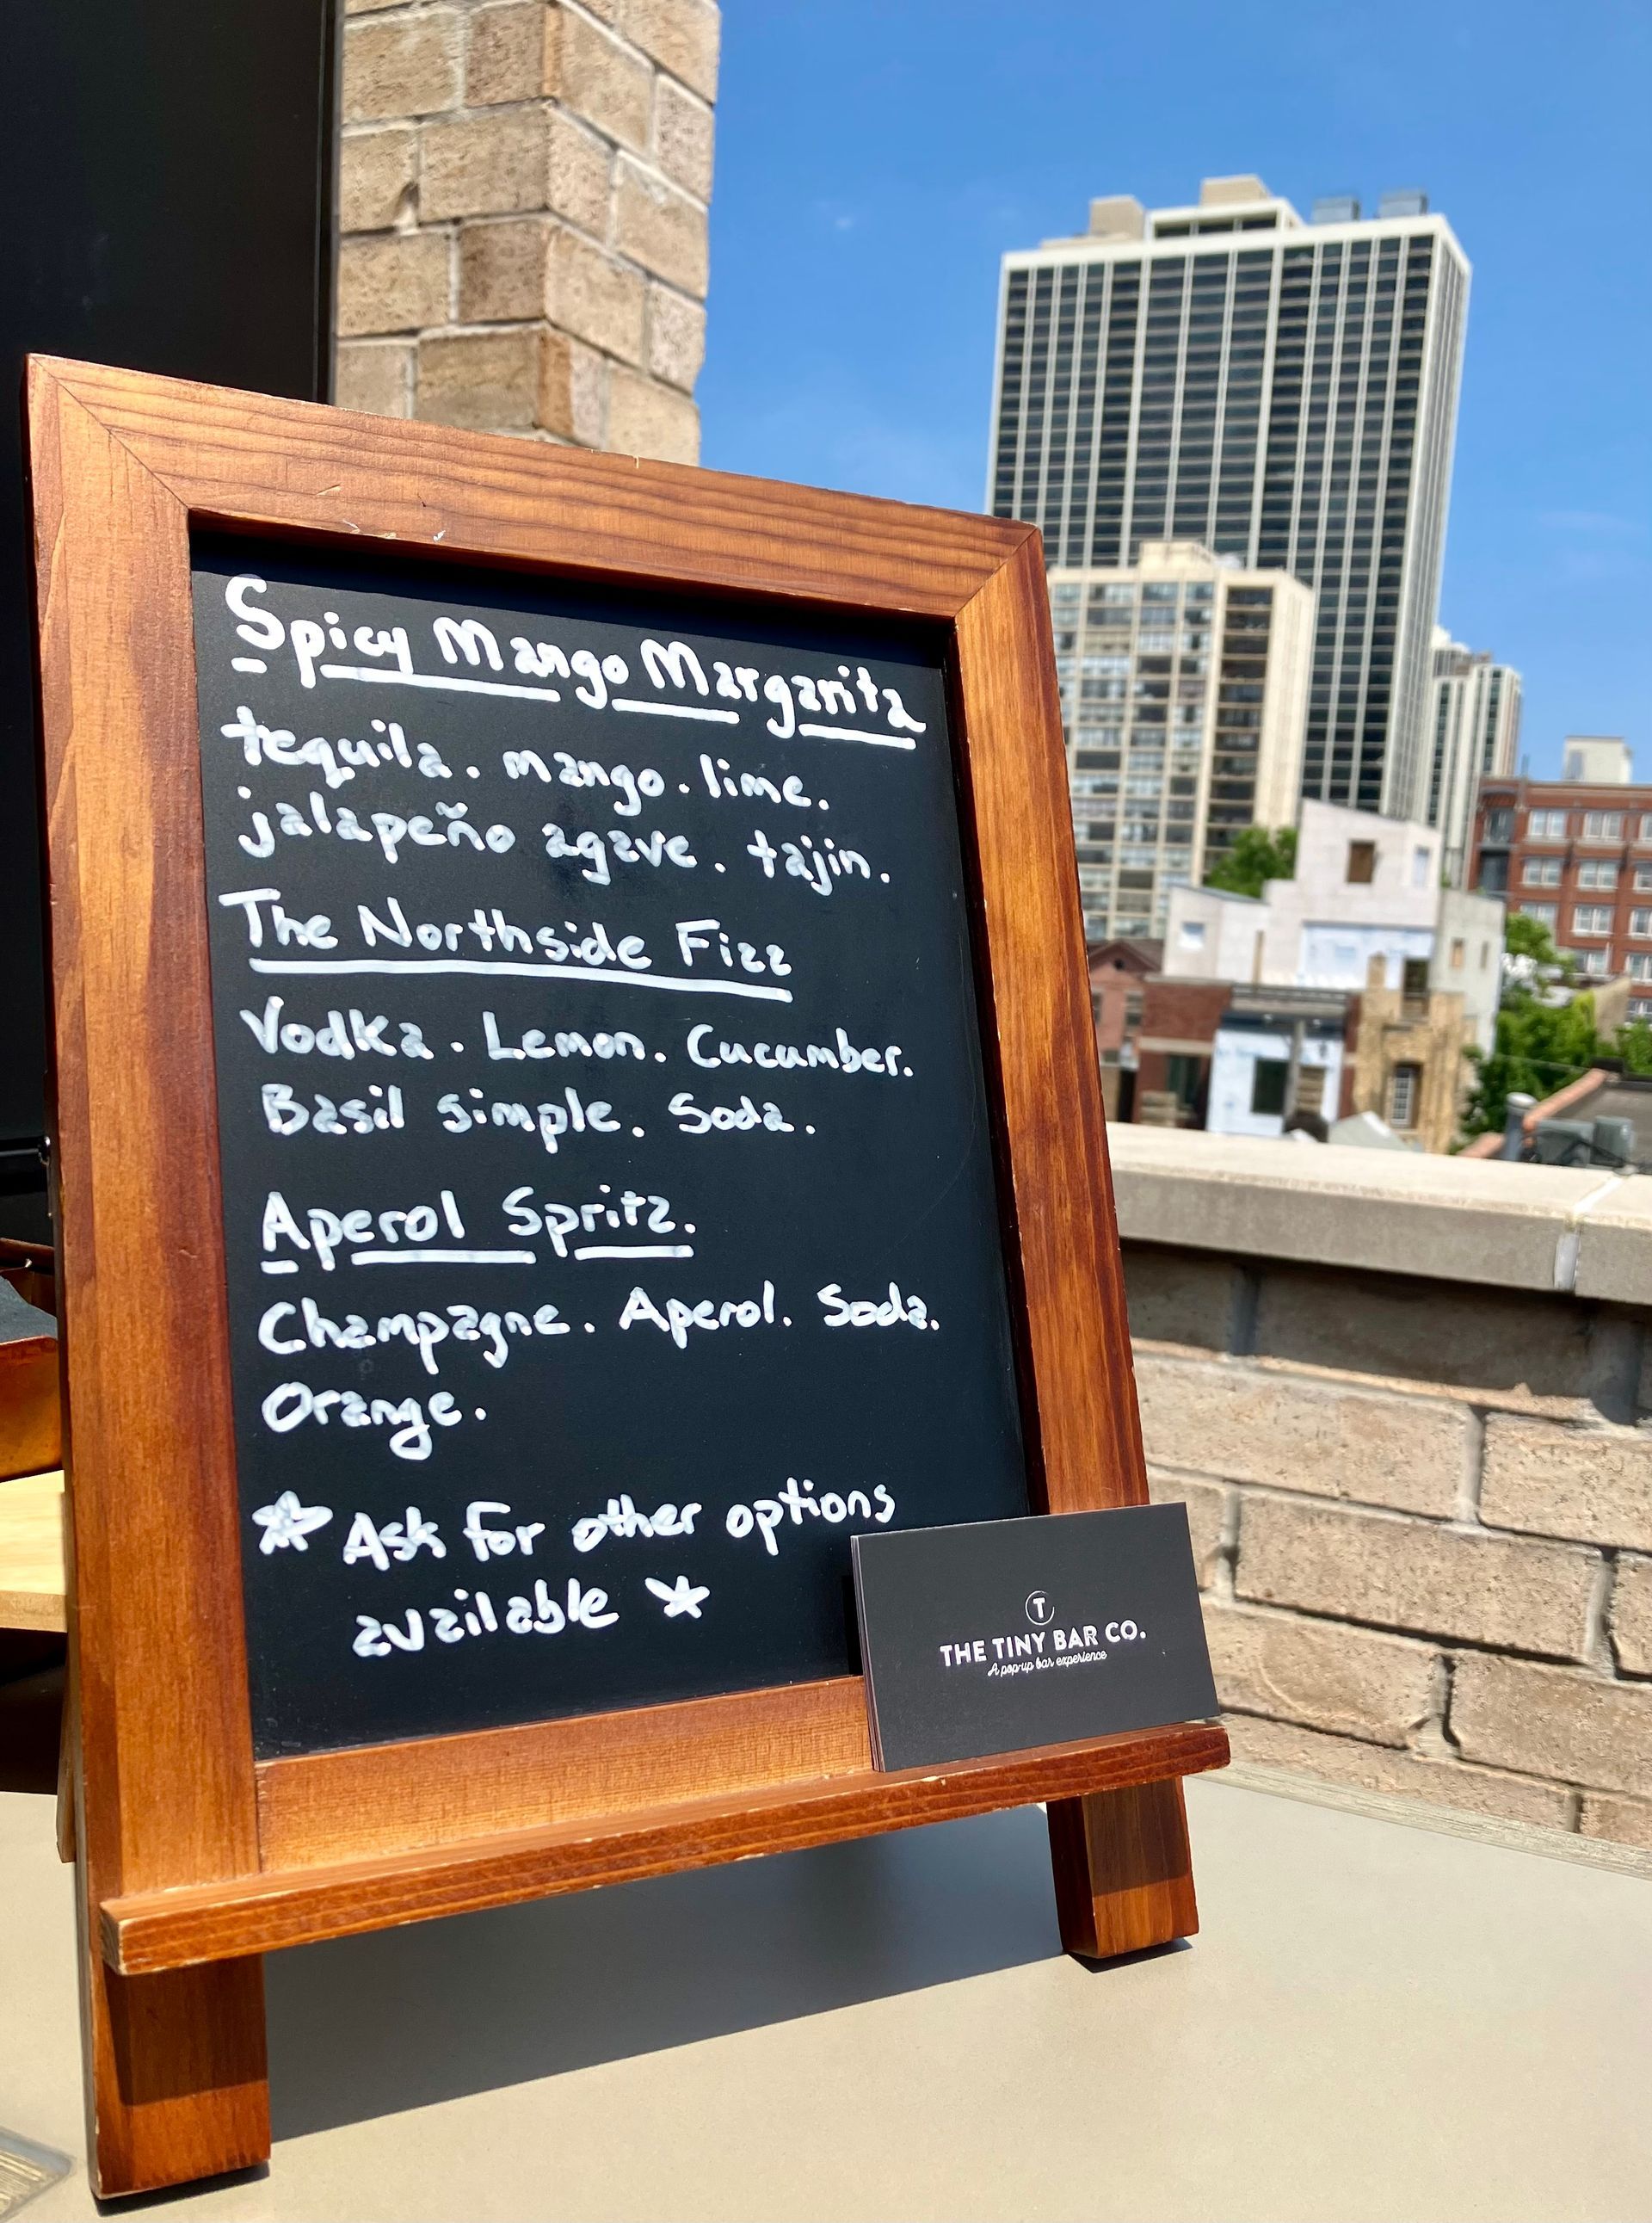 Spicy Mango Margarita
tequila. mango. lime.
jalapeño agave. tajin.
The Northside Fizz
Vodka. Lemon. Cucumber.
Basil simple. Soda.
Aperol Spritz.
Champagne. Aperol. Soda.
Orange.
* Ask for other options
available *
T
THE TINY BAR CO.
A pop-up bar experience